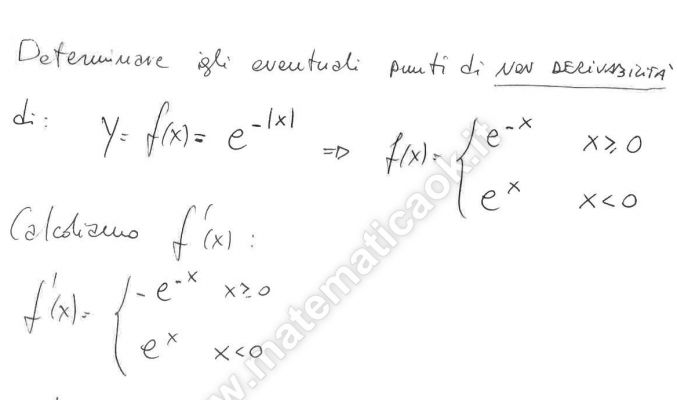 Determinare gli eventuali punti di NON DERIVABILITÀ
di: y = f(x) = e^{-|x|} => f(x) = { e^{-x} x ≥ 0
e^{x} x < 0
Calcoliamo f'(x):
f'(x) = { -e^{-x} x ≥ 0
e^{x} x < 0
www.matematicaok.it